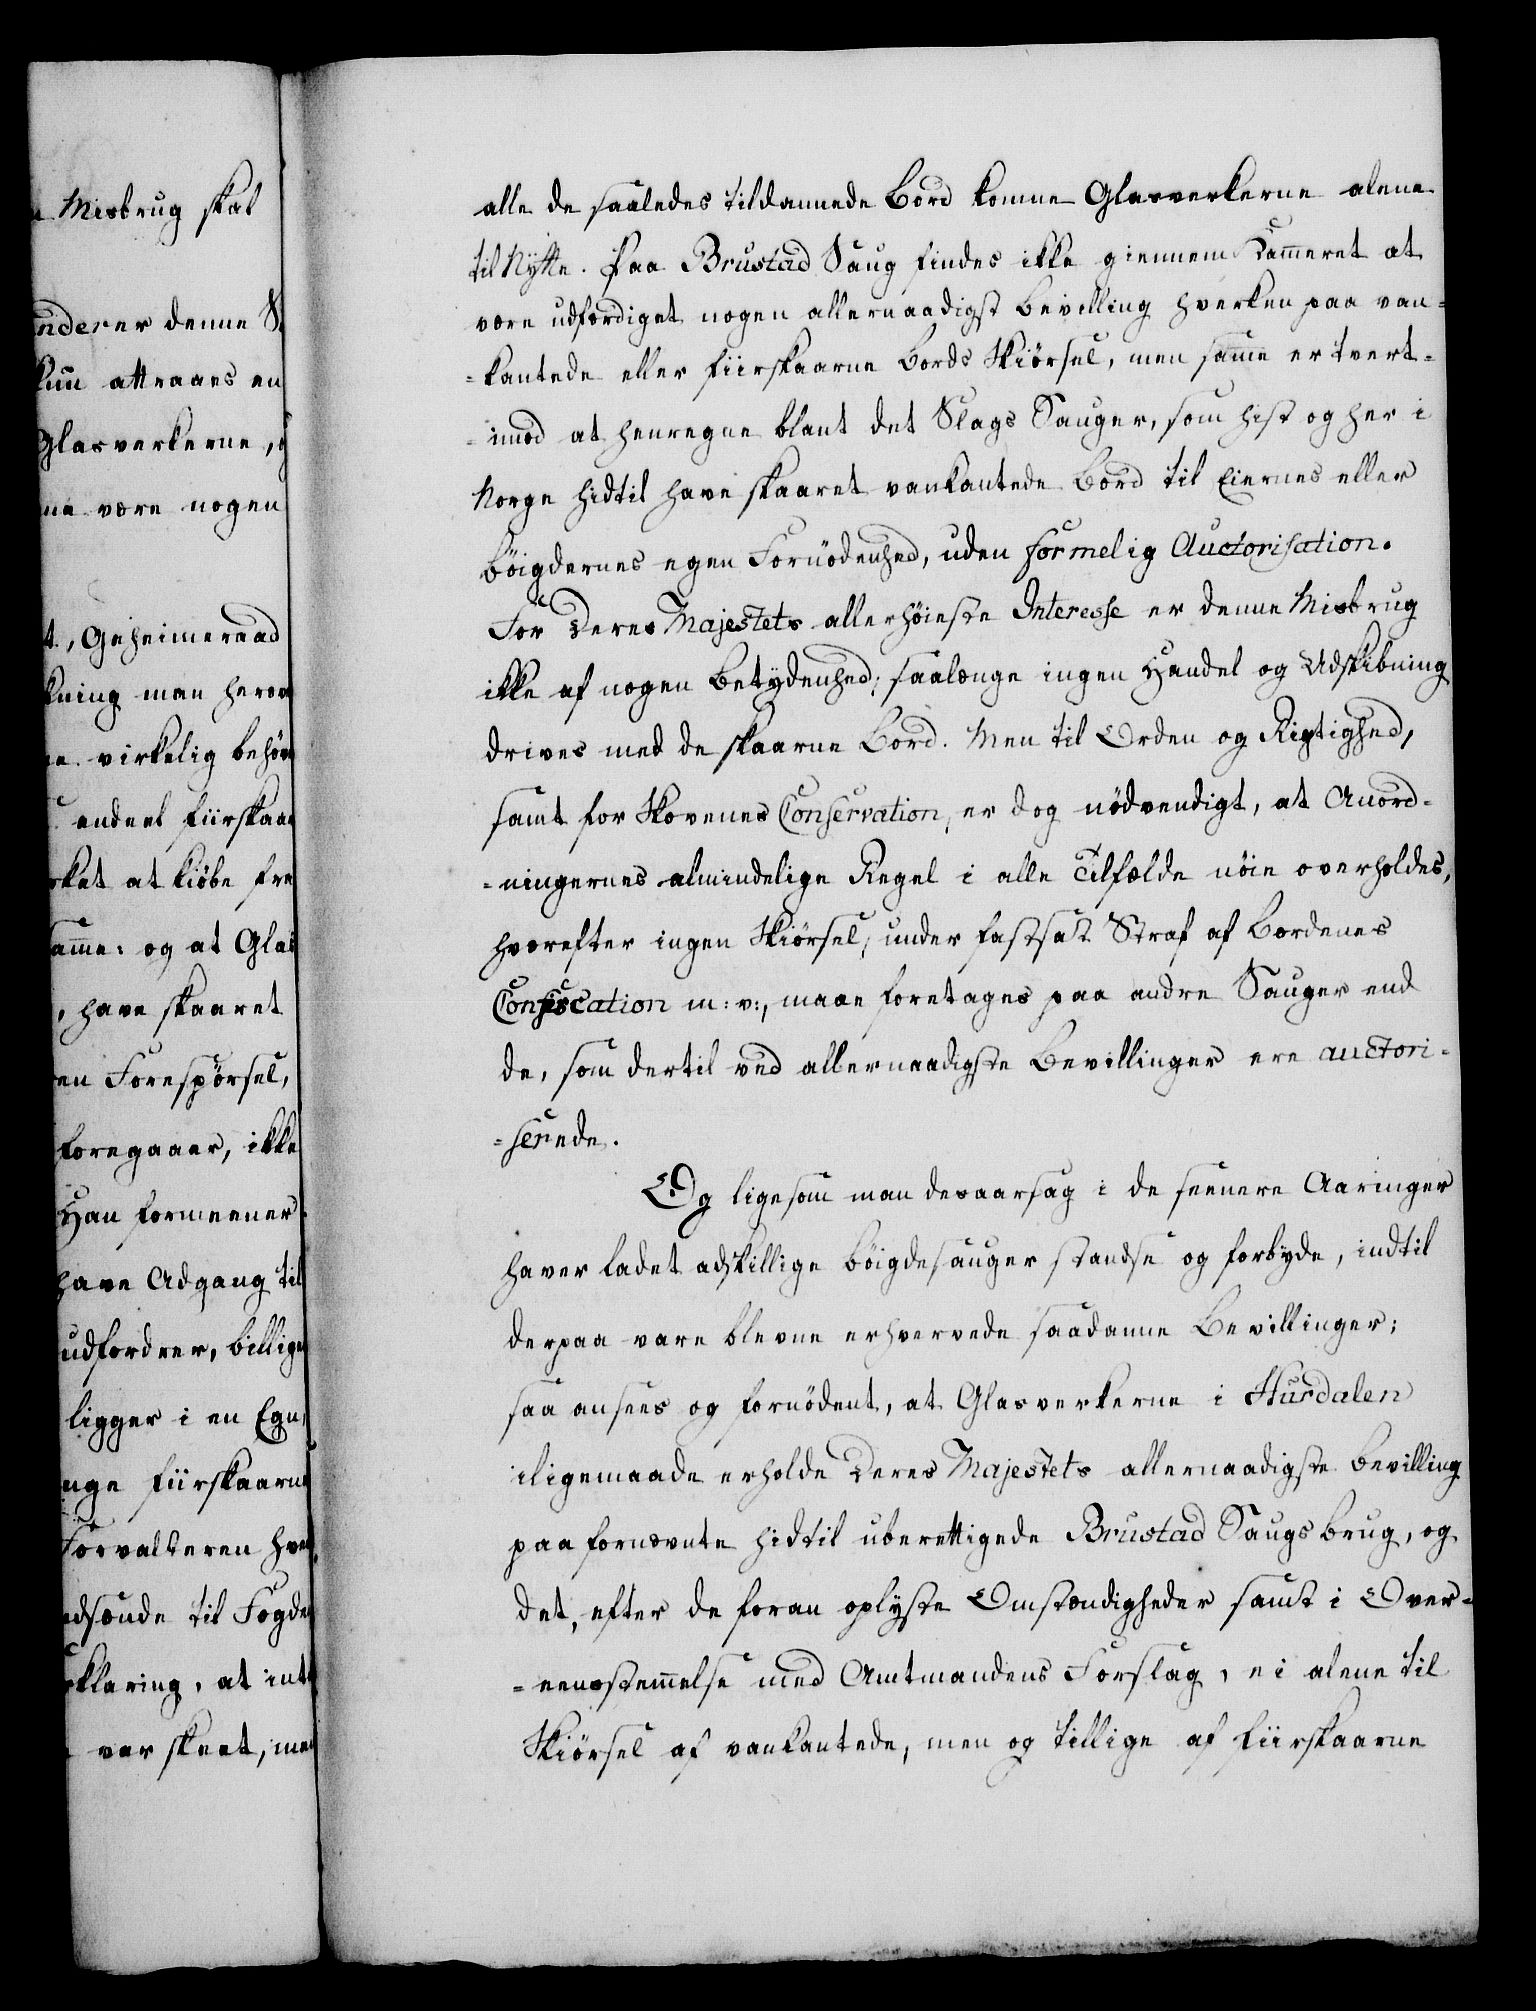 n Misbrug skal
nderer denne
kun attraaes en
Glasverkerne,
ne være nogen
t, Geheimeraad
kning man herov
ne virkelig behöv
endeel fiirskaar
rket at kiöbe fra
samme: og at Glas
, have skaaret
en Forespörsel,
foregaaer, ikke
Han formeener
have Adgang til
udfordrer, billig
ligger i en Egn,
nge fiirskaarne
Forvalteren hv
dsende til Fogde
rklaring, at int
var skeet, men
alle de saaledes tildannede Bord komme Glasverkerne alene
til Nytte. Paa Brustad Saug findes ikke giennem Kam̅eret at
være udfærdiget nogen allernaadigst Bevilling hverken paa van-
-kantede eller fiirskaarne Bords Skiörsel, men sam̅e er tvert-
-imod at henregne blant det Slags Sauger, som hist og her i
Norge hidtil have skaaret vankantede Bord til Eiernes eller
Böigdernes egen Fornödenhed, uden formelig Auctorisation.
For Deres Majestets allerhöieste Interesse er denne Misbrug
ikke af nogen Betydenhed; saalænge ingen Handel og Udskibning
drives med de skaarne Bord. Men til Orden og Rigtighed,
samt for Skovenes Conservation, er dog nödvendigt, at Anord-
-ningernes almindelige Regel i alle Tilfælde nöie overholdes,
hvorefter ingen Skiörsel, under fastsat Straf af Bordenes
Confiscation m: v:, maae foretages paa andre Sauger end
de, som dertil ved allernaadigste Bevillinger ere auctori-
-serede.
Og ligesom man desaarsag i de seenere Aaringer
haver ladet adskillige böigdesauger standse og forbyde, indtil
derpaa vare blevne erhvervede saadanne Bevillinger;
saa ansees og fornödent, at Glasverkerne i Hurdalen
iligemaade erholde Deres Majestets allernaadigste Bevilling
paa fornævnte hidtil uberettigede Brustad Saugs brug, og
det, efter de foran oplyste Omstændigheder samt i Over-
-eenstem̅else med Amtmandens Forslag, ei alene til
Skiörsel af vankantede, men og tillige af fiirskaarne